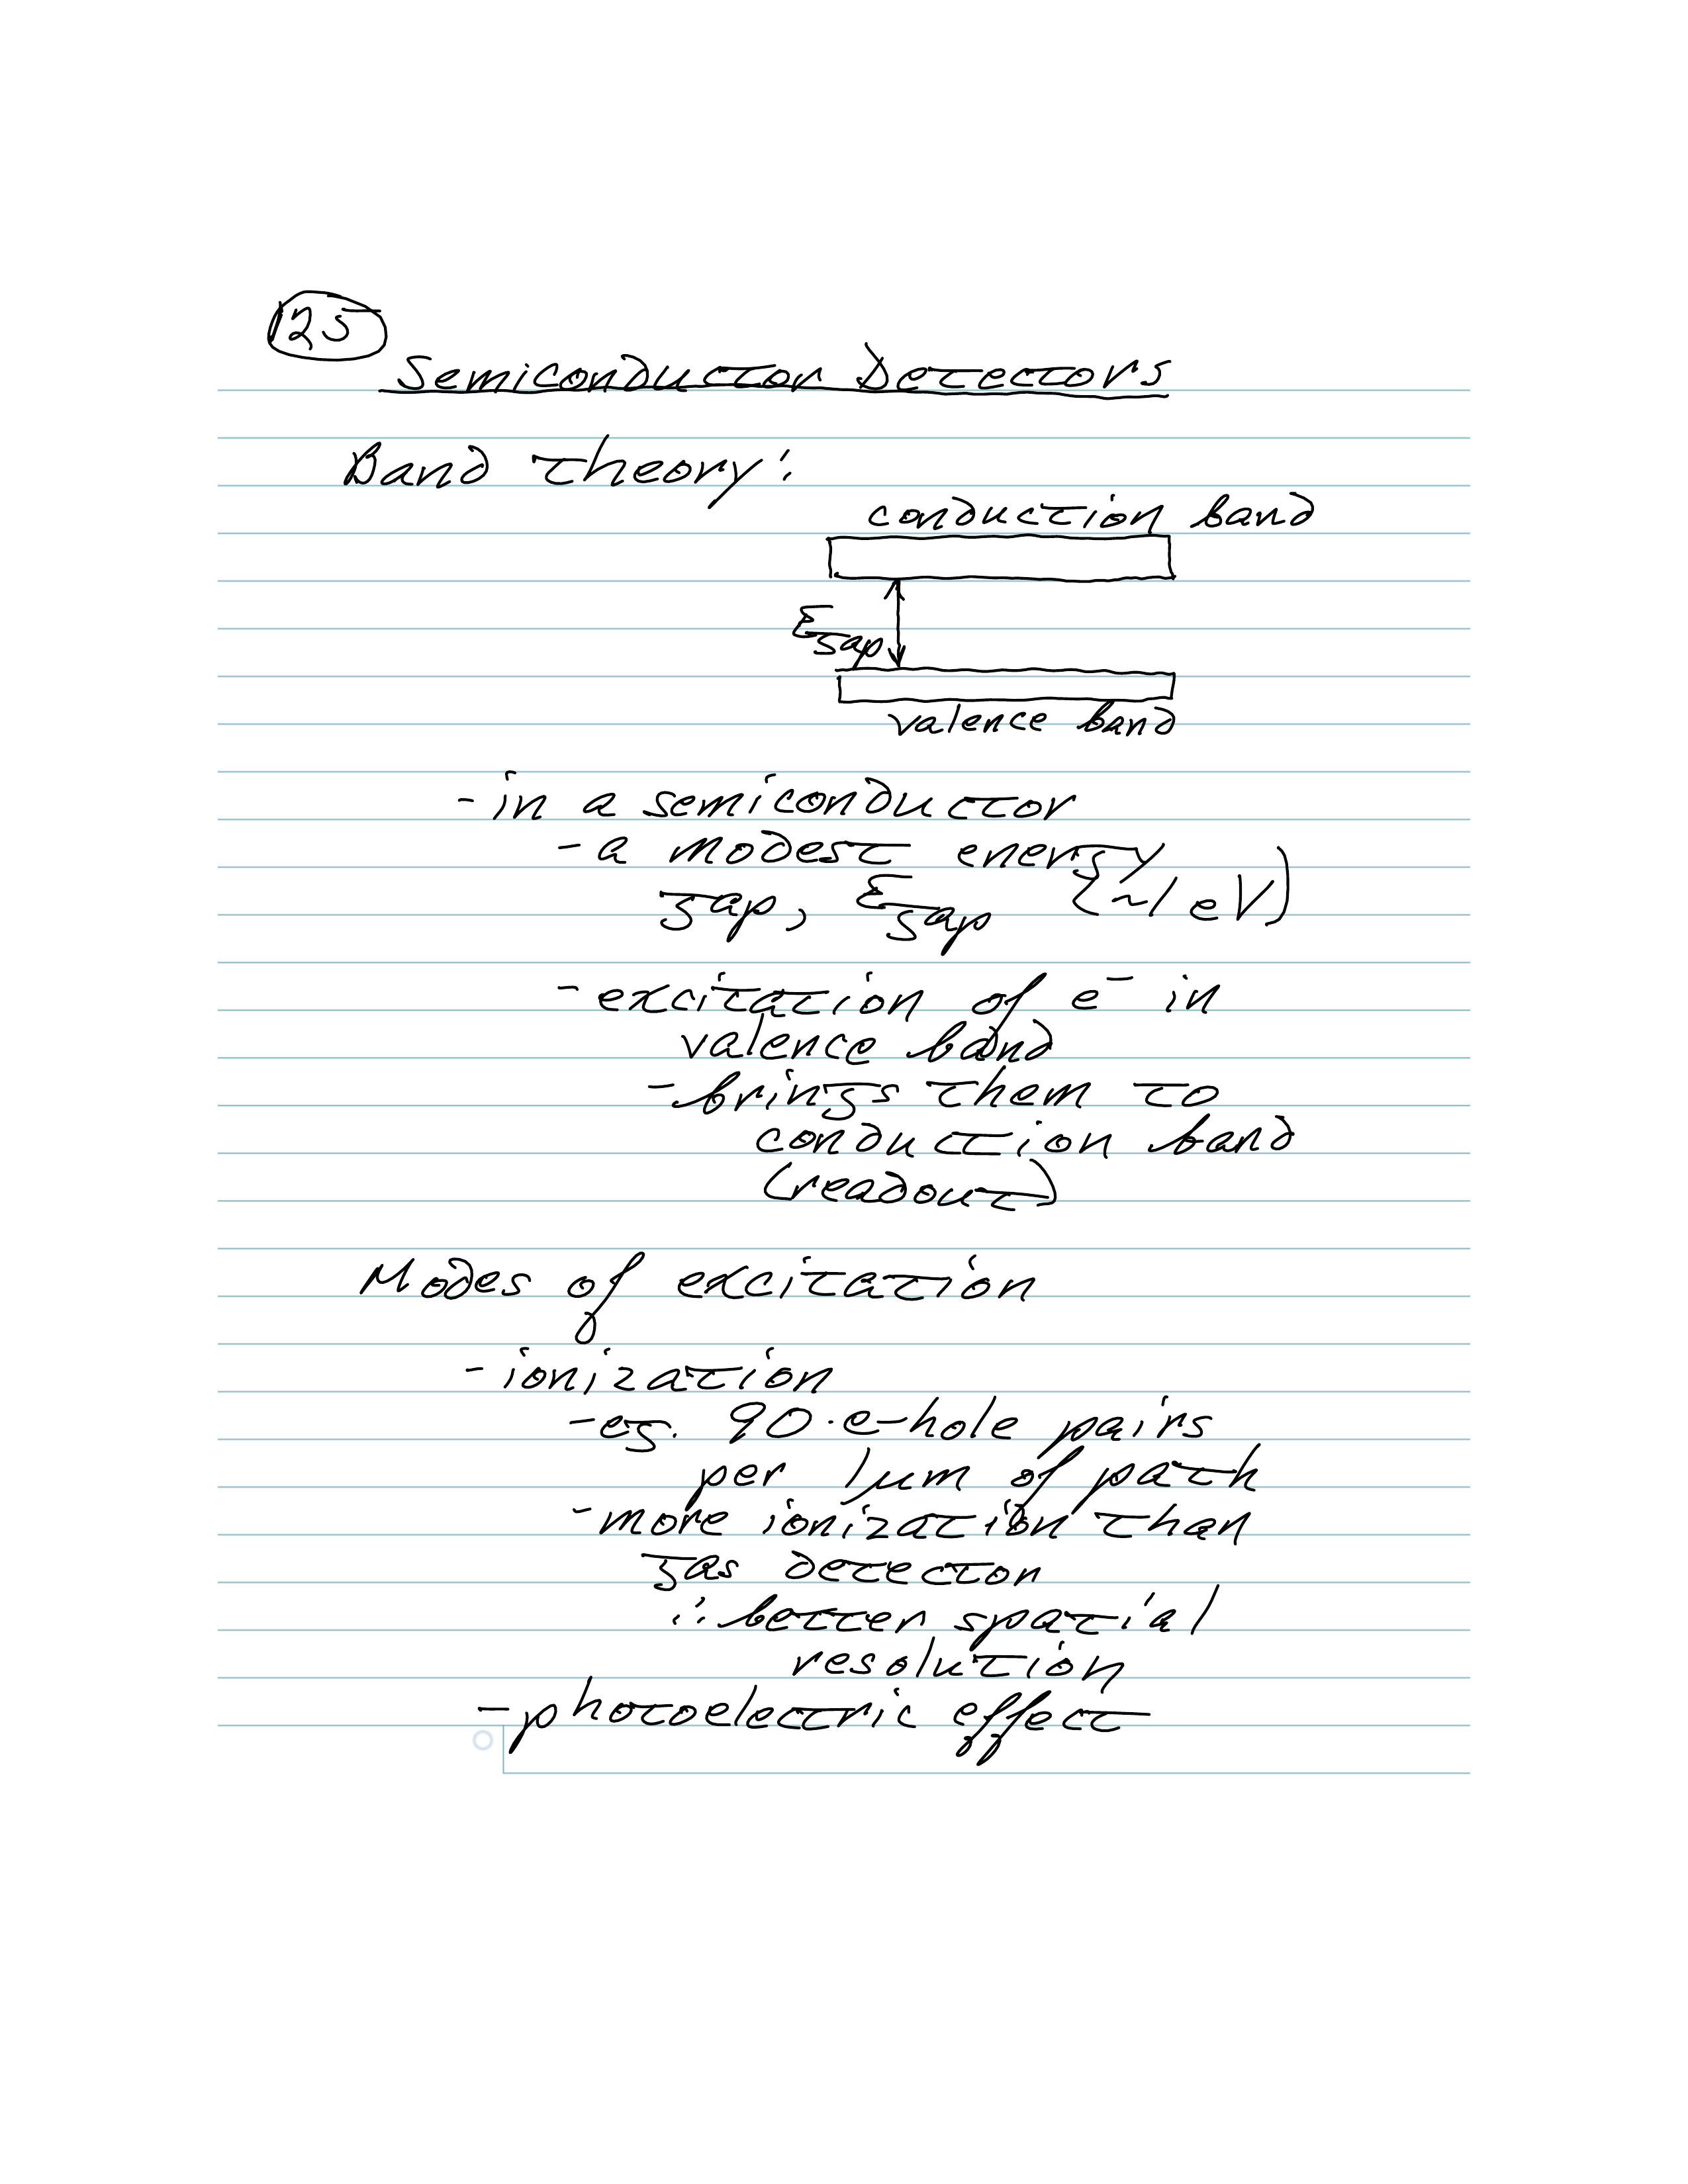 125
Semiconductor Detectors
Band theory:
conduction band
Egap
valence band
- in a semiconductor
- a modest energy
gap, Egap (~1 eV)
- excitation of e⁻ in
valence band
- brings them to
conduction band
(readout)
Modes of excitation
- ionization
- eg. 90 e-hole pairs
per 1μm of path
- more ionization than
gas detector
∴ better spatial
resolution
- photoelectric effect